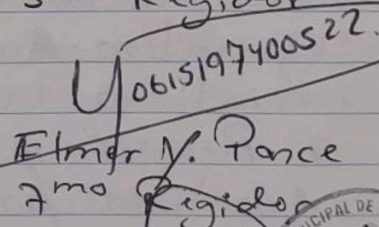 Regidor
0615197400522
Elmer Y. Ponce
7mo Regidor
CIPAL DE